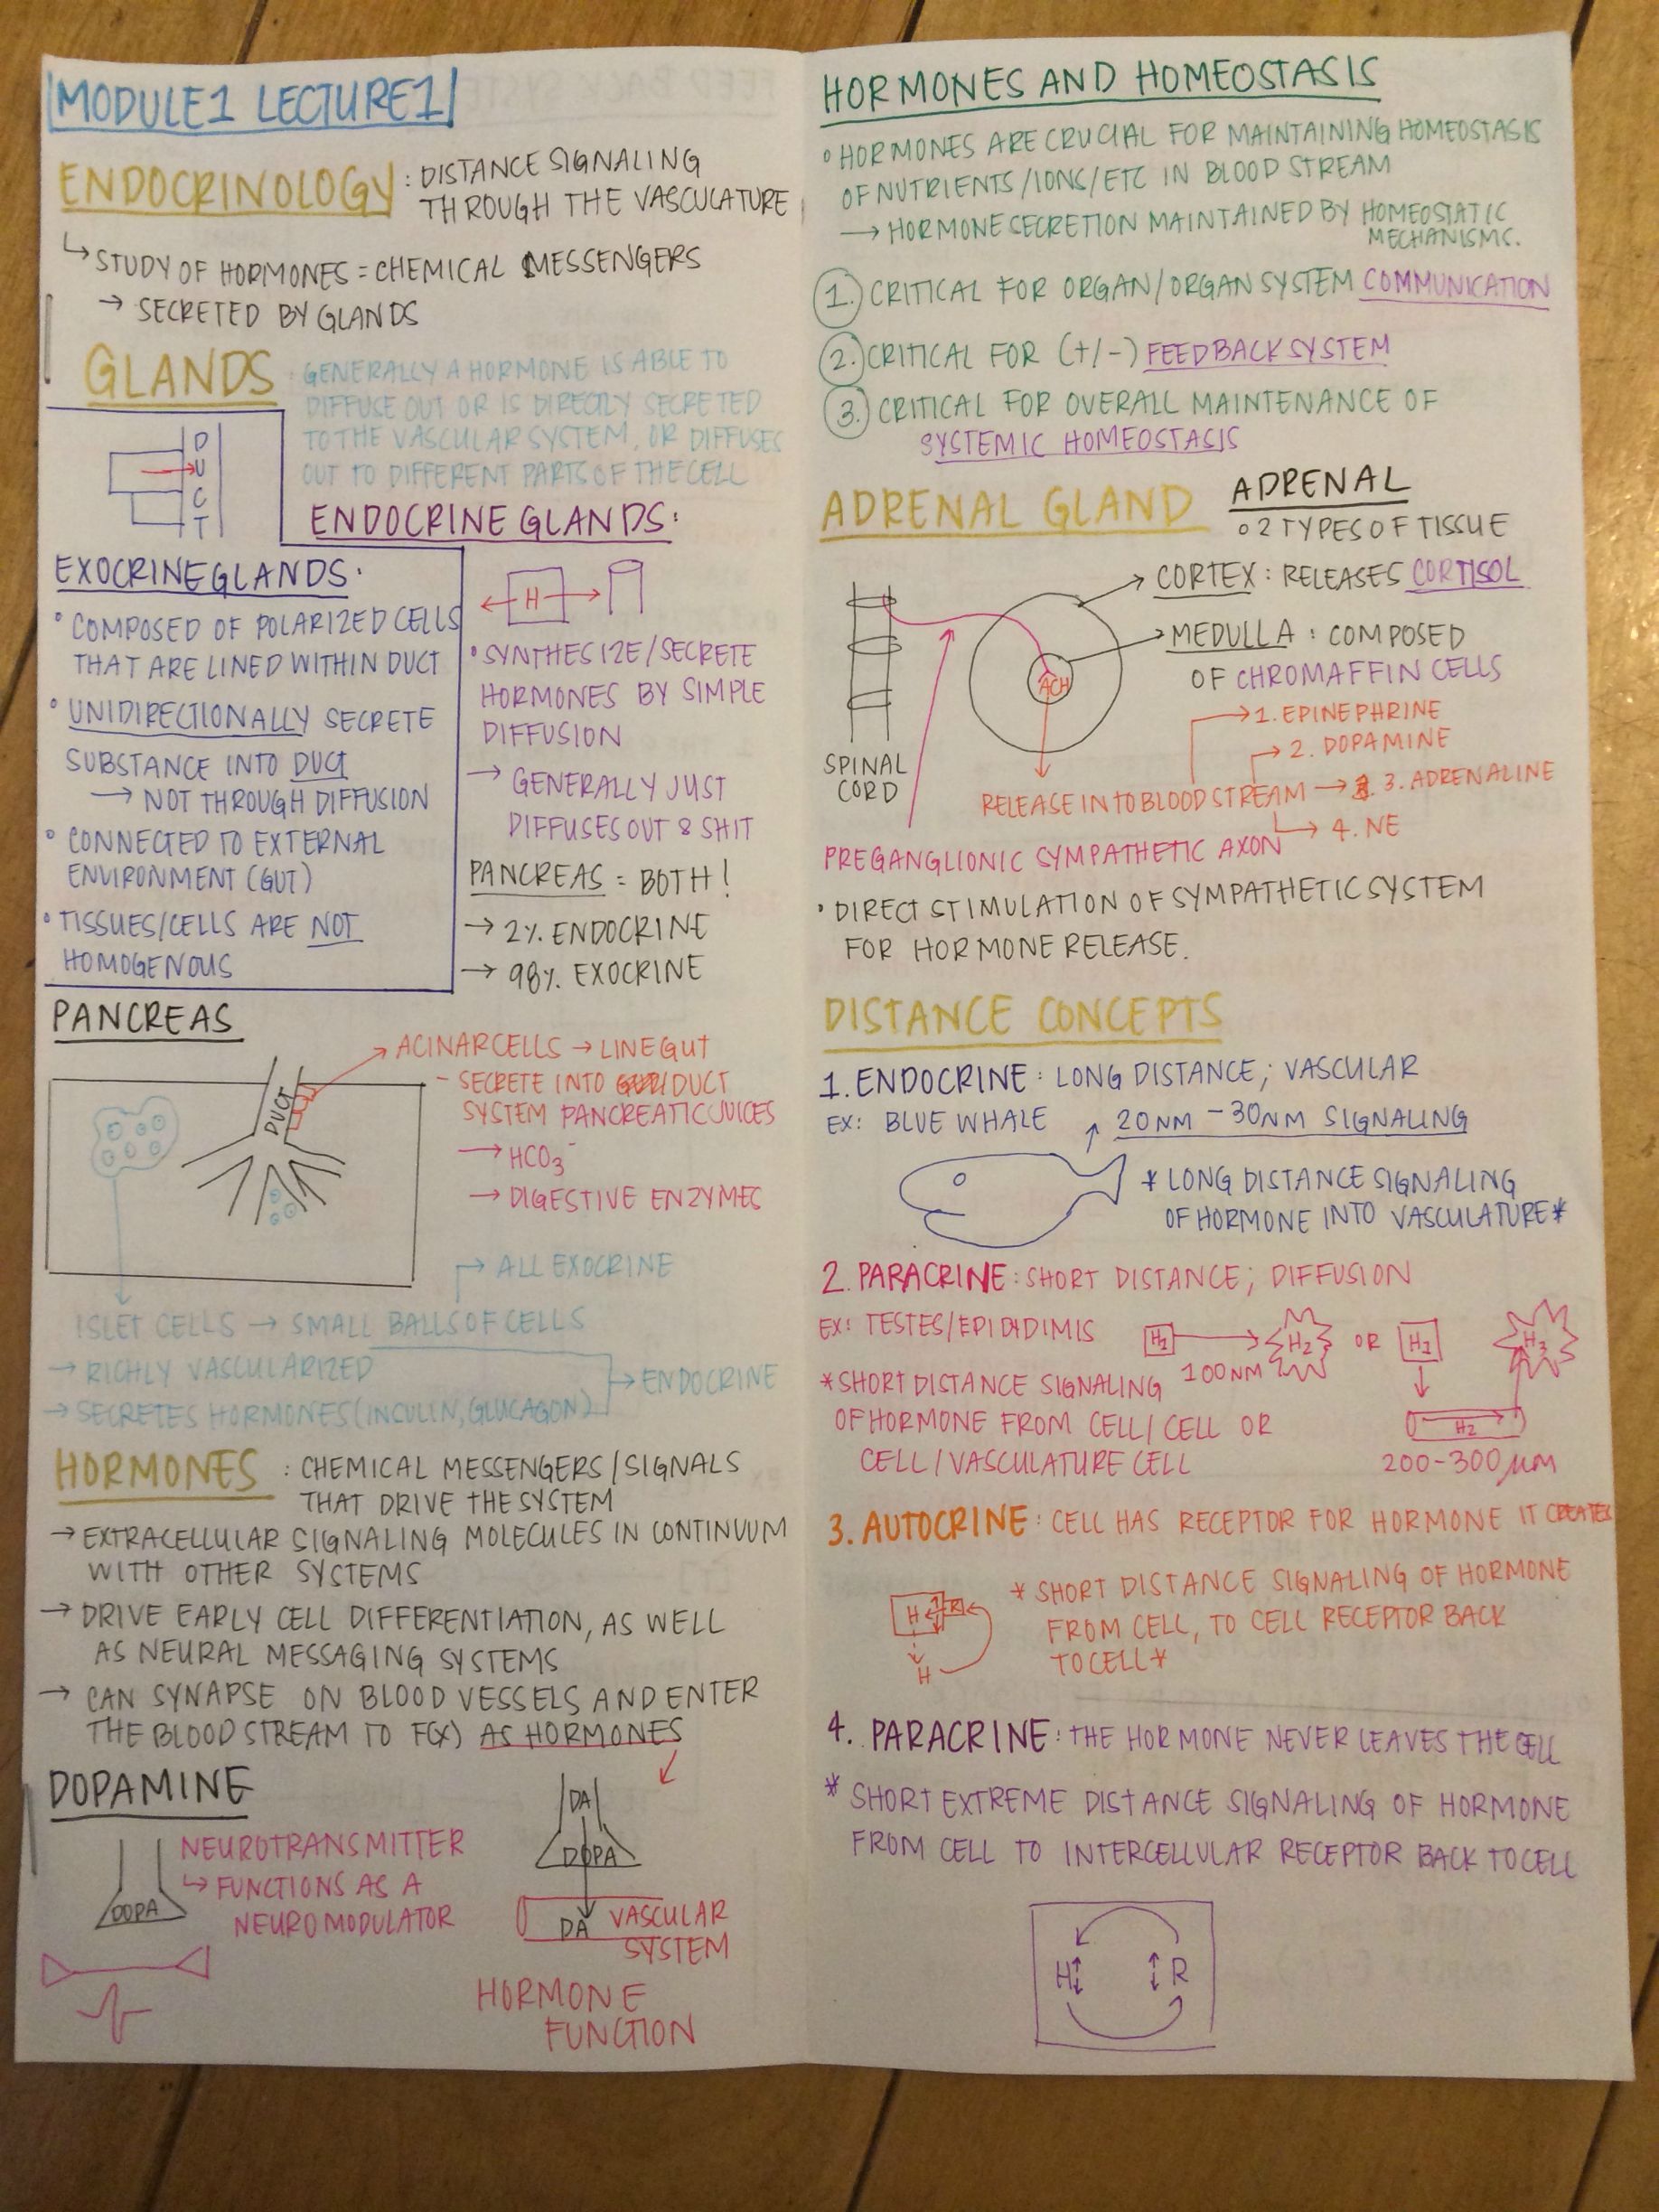 MODULE1 LECTURE1
ENDOCRINOLOGY : DISTANCE SIGNALING
THROUGH THE VASCULATURE
↳ STUDY OF HORMONES = CHEMICAL MESSENGERS
→ SECRETED BY GLANDS
GLANDS : GENERALLY A HORMONE IS ABLE TO
DIFFUSE OUT OR IS DIRECTLY SECRETED
TO THE VASCULAR SYSTEM, OR DIFFUSES
OUT TO DIFFERENT PARTS OF THE CELL
DUCT
EXOCRINE GLANDS:
• COMPOSED OF POLARIZED CELLS
THAT ARE LINED WITHIN DUCT
• UNIDIRECTIONALLY SECRETE
SUBSTANCE INTO DUCT
→ NOT THROUGH DIFFUSION
• CONNECTED TO EXTERNAL
ENVIRONMENT (GUT)
• TISSUES/CELLS ARE NOT
HOMOGENOUS
ENDOCRINE GLANDS:
H
• SYNTHESIZE/SECRETE
HORMONES BY SIMPLE
DIFFUSION
→ GENERALLY JUST
DIFFUSES OUT & SHIT
PANCREAS = BOTH!
→ 2% ENDOCRINE
→ 98% EXOCRINE
PANCREAS
DUCT
ACINAR CELLS → LINE GUT
- SECRETE INTO DUCT
SYSTEM PANCREATIC JUICES
→ HCO3⁻
→ DIGESTIVE ENZYMES
→ ALL EXOCRINE
ISLET CELLS → SMALL BALLS OF CELLS
→ RICHLY VASCULARIZED
→ ENDOCRINE
→ SECRETES HORMONES (INSULIN, GLUCAGON)
HORMONES : CHEMICAL MESSENGERS/SIGNALS
THAT DRIVE THE SYSTEM
→ EXTRACELLULAR SIGNALING MOLECULES IN CONTINUUM
WITH OTHER SYSTEMS
→ DRIVE EARLY CELL DIFFERENTIATION, AS WELL
AS NEURAL MESSAGING SYSTEMS
→ CAN SYNAPSE ON BLOOD VESSELS AND ENTER
THE BLOOD STREAM TO F(X) AS HORMONES
DOPAMINE
DOPA
NEUROTRANSMITTER
↳ FUNCTIONS AS A
NEUROMODULATOR
DA
DOPA
DA
VASCULAR
SYSTEM
HORMONE
FUNCTION
HORMONES AND HOMEOSTASIS
• HORMONES ARE CRUCIAL FOR MAINTAINING HOMEOSTASIS
OF NUTRIENTS/IONS/ETC IN BLOOD STREAM
→ HORMONE SECRETION MAINTAINED BY HOMEOSTATIC
MECHANISMS.
1. CRITICAL FOR ORGAN/ORGAN SYSTEM COMMUNICATION
2. CRITICAL FOR (+/-) FEEDBACK SYSTEM
3. CRITICAL FOR OVERALL MAINTENANCE OF
SYSTEMIC HOMEOSTASIS
ADRENAL GLAND
ADRENAL
• 2 TYPES OF TISSUE
→ CORTEX : RELEASES CORTISOL
→ MEDULLA : COMPOSED
OF CHROMAFFIN CELLS
ACH
SPINAL
CORD
→ 1. EPINEPHRINE
→ 2. DOPAMINE
RELEASE INTO BLOOD STREAM → 3. ADRENALINE
→ 4. NE
PREGANGLIONIC SYMPATHETIC AXON
• DIRECT STIMULATION OF SYMPATHETIC SYSTEM
FOR HORMONE RELEASE.
DISTANCE CONCEPTS
1. ENDOCRINE : LONG DISTANCE; VASCULAR
EX: BLUE WHALE ↑ 20NM - 30NM SIGNALING
* LONG DISTANCE SIGNALING
OF HORMONE INTO VASCULATURE *
2. PARACRINE : SHORT DISTANCE; DIFFUSION
EX: TESTES/EPIDIDIMIS
H1 → H2 OR H1 H3
100NM
H2
200-300µM
* SHORT DISTANCE SIGNALING
OF HORMONE FROM CELL/CELL OR
CELL/VASCULATURE CELL
3. AUTOCRINE : CELL HAS RECEPTOR FOR HORMONE IT CREATES
H R
H
* SHORT DISTANCE SIGNALING OF HORMONE
FROM CELL, TO CELL RECEPTOR BACK
TO CELL *
4. PARACRINE : THE HORMONE NEVER LEAVES THE CELL
* SHORT EXTREME DISTANCE SIGNALING OF HORMONE
FROM CELL TO INTERCELLULAR RECEPTOR BACK TO CELL
H R